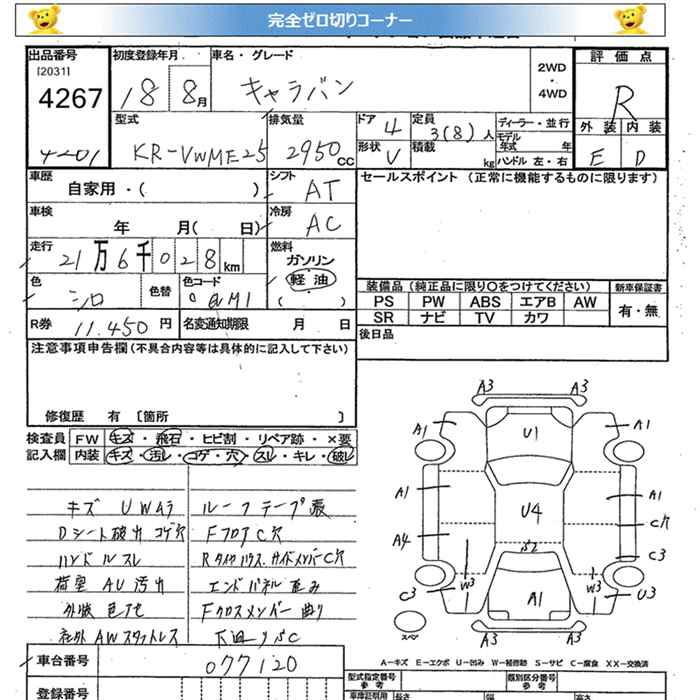 完全ゼロ切りコーナー
出品番号 初度登録年月 車名・グレード 2WD・4WD 評価点
[2031]
4267 18 8月 キャラバン R
4201
型式 排気量 ドア 定員 ディーラー・並行 外装 内装
KR-VWME25 2950cc 4 3(8)人 モデル年式 年 E D
形状 V 積載 kg ハンドル 左・右
車歴 シフト セールスポイント (正常に機能するものに限ります)
自家用・( ) AT
車検 冷房
年 月( 日) AC
走行 燃料
21万6千028km ガソリン
軽油
色 色替 色コード ( )
シロ QM1
装備品 (純正品に限り〇をつけてください) 新車保証書
PS PW ABS エアB AW 有・無
SR ナビ TV カワ
R券 11,450円 名変通知期限 月 日
後日品
注意事項申告欄(不具合内容等は具体的に記入して下さい)
修復歴 有 [箇所 ]
検査員 FW キズ・飛石・ヒビ割・リペア跡・×要
記入欄 内装 キズ・汚レ・コゲ・穴・スレ・キレ・破レ
キズ UWAラ ルーフテープ張
Dシート破れ コゲ穴 FフロアC穴
ハンドルスレ RタイヤハウスサイドメンバーC穴
荷室AU汚れ エンドパネル歪み
外板色ボケ Fクロスメンバー曲り
社外AWスタットレス 下廻りSC
A3 A3
A1 U1 A1
A1 U4 A1
C穴
A4 S2 C3
C3 W3 A1 W3 U3
スペア
A3 A3
A-キズ E-エクボ U-凹み W-補修跡 S-サビ C-腐食 XX-交換済
車台番号 077120
型式指定番号 参考 類別区分番号 参考
登録番号
車庫証明用 長さ 幅 高さ